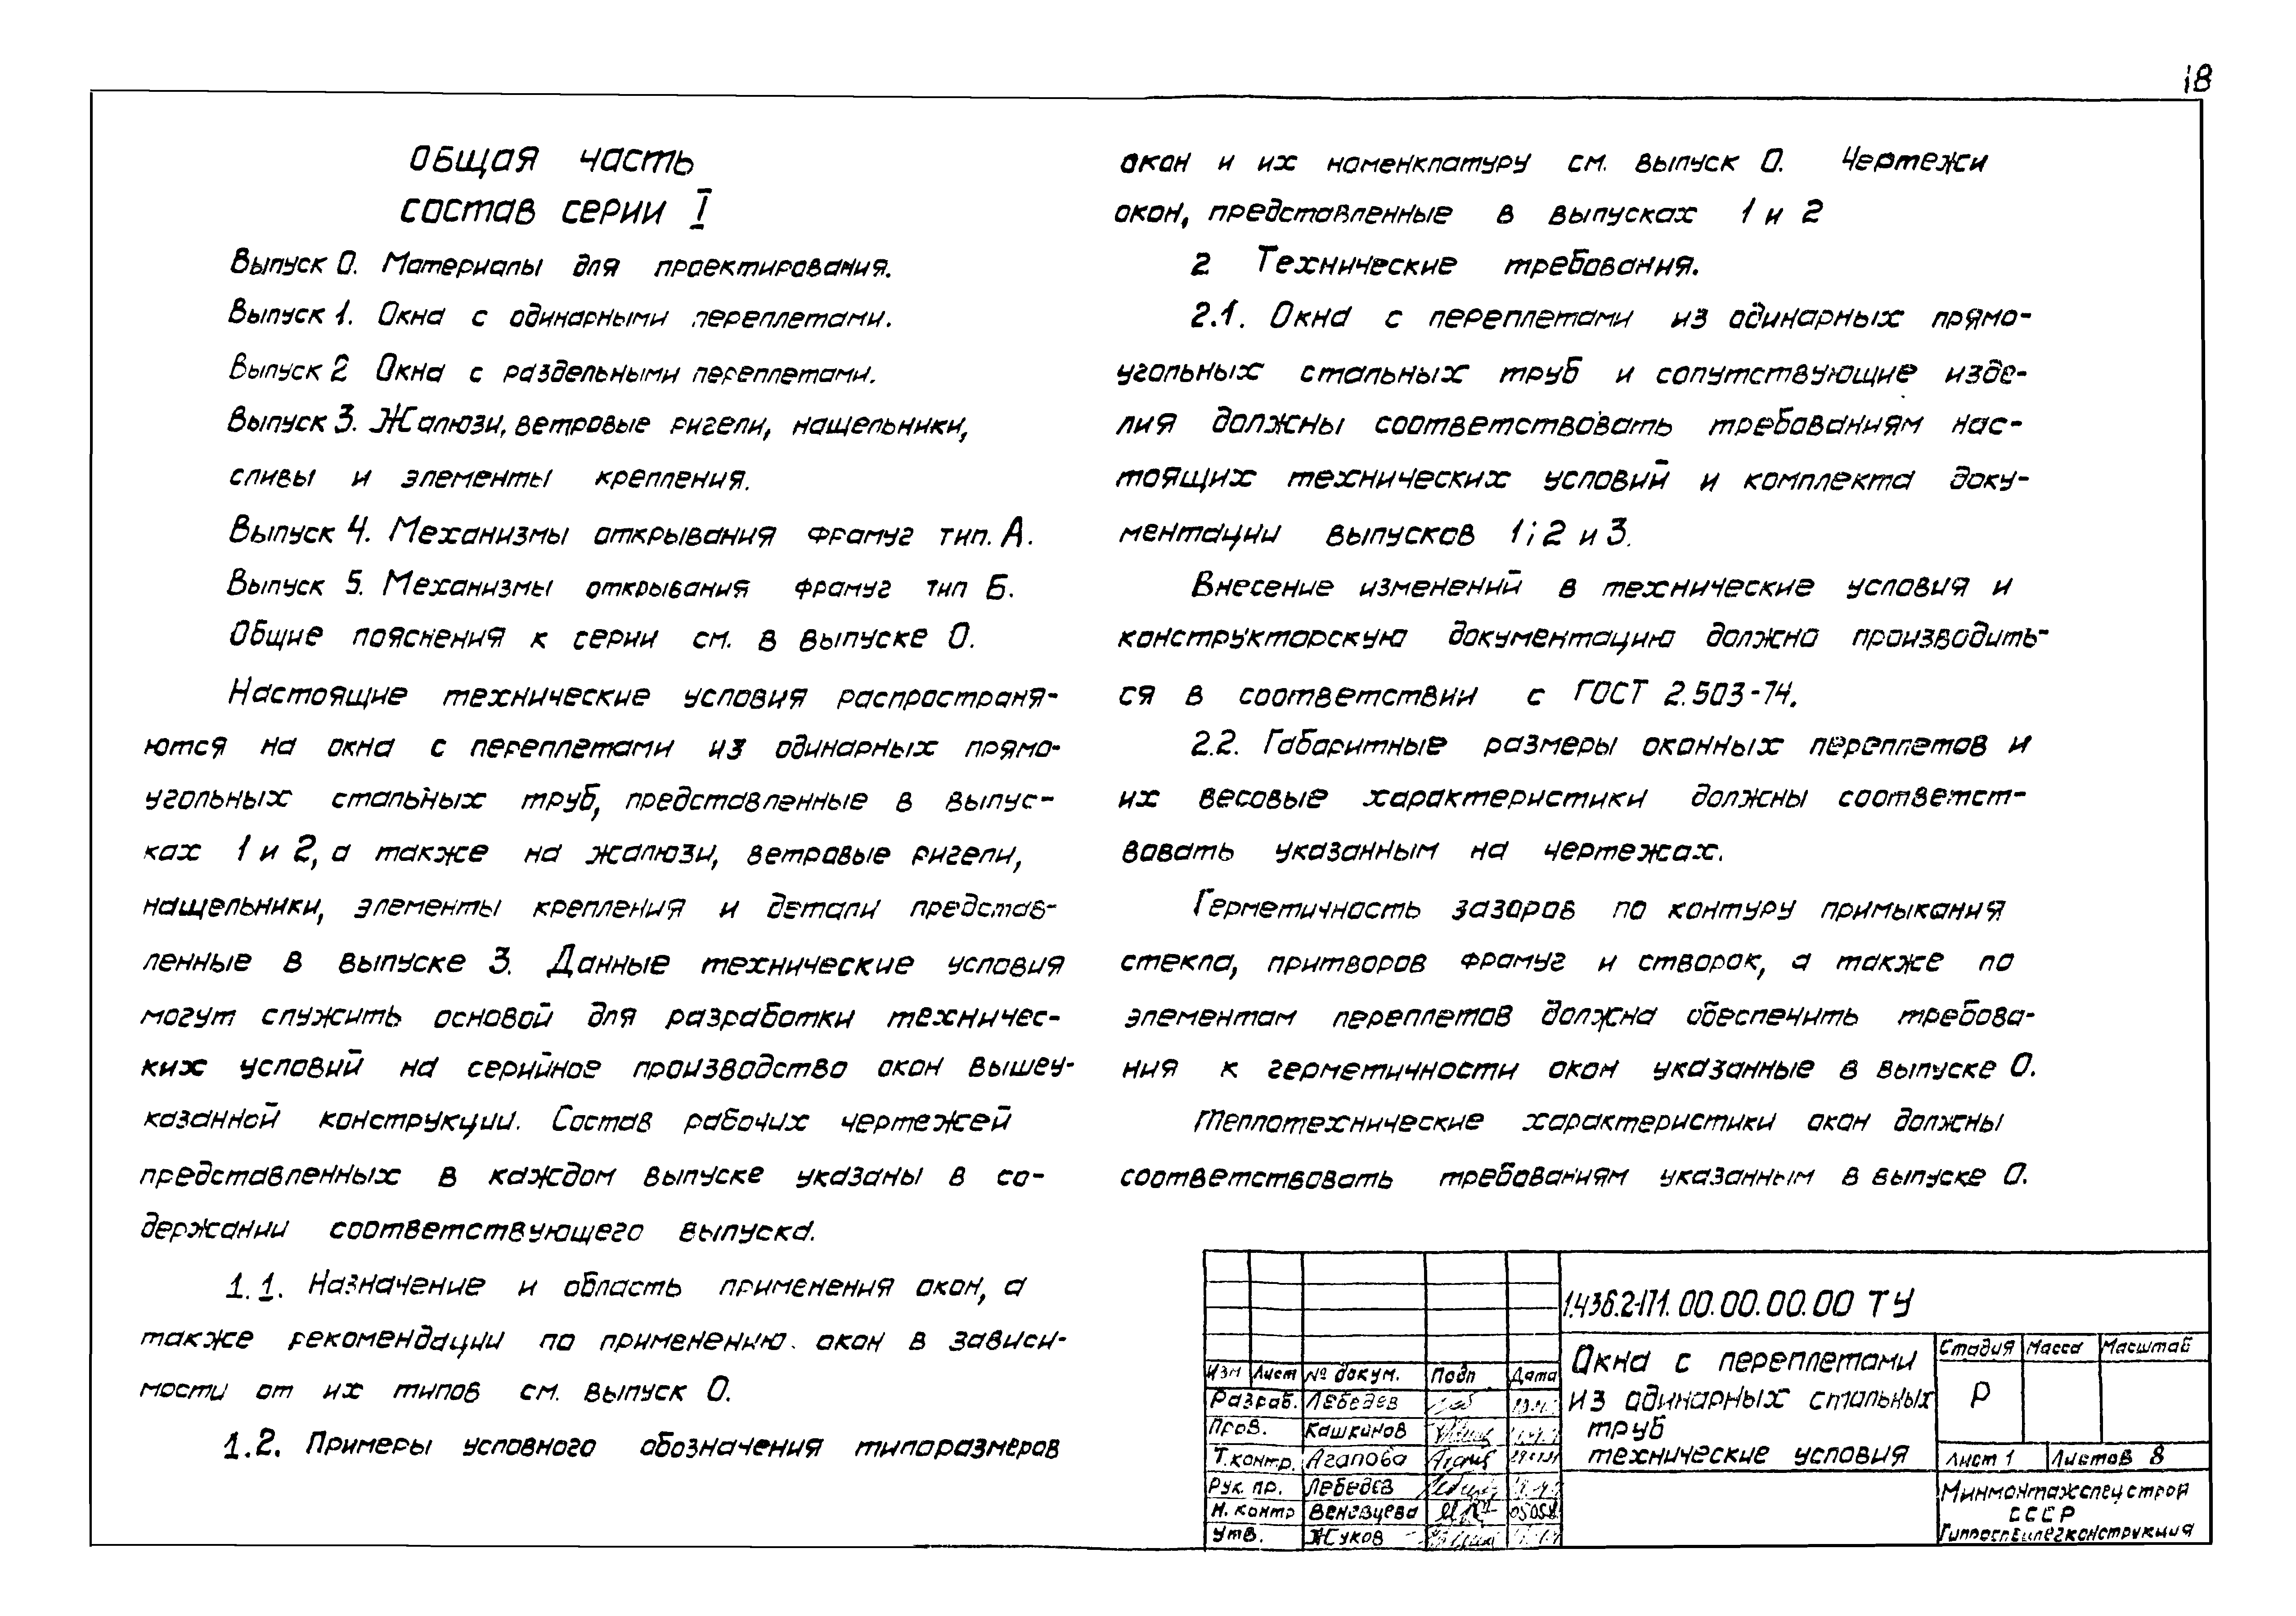 18
Общая часть
состав серии I
Выпуск 0. Материалы для проектирования.
Выпуск 1. Окна с одинарными переплетами.
Выпуск 2 Окна с раздельными переплетами.
Выпуск 3. Жалюзи, ветровые ригели, нащельники,
сливы и элементы крепления.
Выпуск 4. Механизмы открывания фрамуг тип. А.
Выпуск 5. Механизмы открывания фрамуг тип Б.
Общие пояснения к серии см. в выпуске 0.
Настоящие технические условия распространя-
ются на окна с переплетами из одинарных прямо-
угольных стальных труб, представленные в выпус-
ках 1 и 2, а также на жалюзи, ветровые ригели,
нащельники, элементы крепления и детали представ-
ленные в выпуске 3. Данные технические условия
могут служить основой для разработки техничес-
ких условий на серийное производство окон вышеу-
казанной конструкции. Состав рабочих чертежей
представленных в каждом выпуске указаны в со-
держании соответствующего выпуска.
1.1. Назначение и область применения окон, а
также рекомендации по применению окон в зависи-
мости от их типов см. выпуск 0.
1.2. Примеры условного обозначения типоразмеров
окон и их номенклатуру см. выпуск 0. Чертежи
окон, представленные в выпусках 1 и 2
2 Технические требования.
2.1. Окна с переплетами из одинарных прямо-
угольных стальных труб и сопутствующие изде-
лия должны соответствовать требованиям нас-
тоящих технических условий и комплекта доку-
ментации выпусков 1; 2 и 3.
Внесение изменений в технические условия и
конструкторскую документацию должно производить-
ся в соответствии с ГОСТ 2.503-74.
2.2. Габаритные размеры оконных переплетов и
их весовые характеристики должны соответст-
вовать указанным на чертежах.
Герметичность зазоров по контуру примыкания
стекла, притворов фрамуг и створок, а также по
элементам переплетов должна обеспечить требова-
ния к герметичности окон указанные в выпуске 0.
Теплотехнические характеристики окон должны
соответствовать требованиям указанным в выпуске 0.
1.436.2-17.1. 00.00.00.00 ТУ
Изм Лист № докум. Подп Дата
Разраб. Лебедев
Пров. Кашкинов
Т.контр. Агапова
Рук. пр. Лебедев
Н. контр Веневцева
Утв. Жуков
Окна с переплетами
из одинарных стальных
труб
технические условия
Стадия Масса Масштаб
Р
Лист 1 Листов 8
Минмонтажспецстрой
СССР
Гипроспецлегконструкция